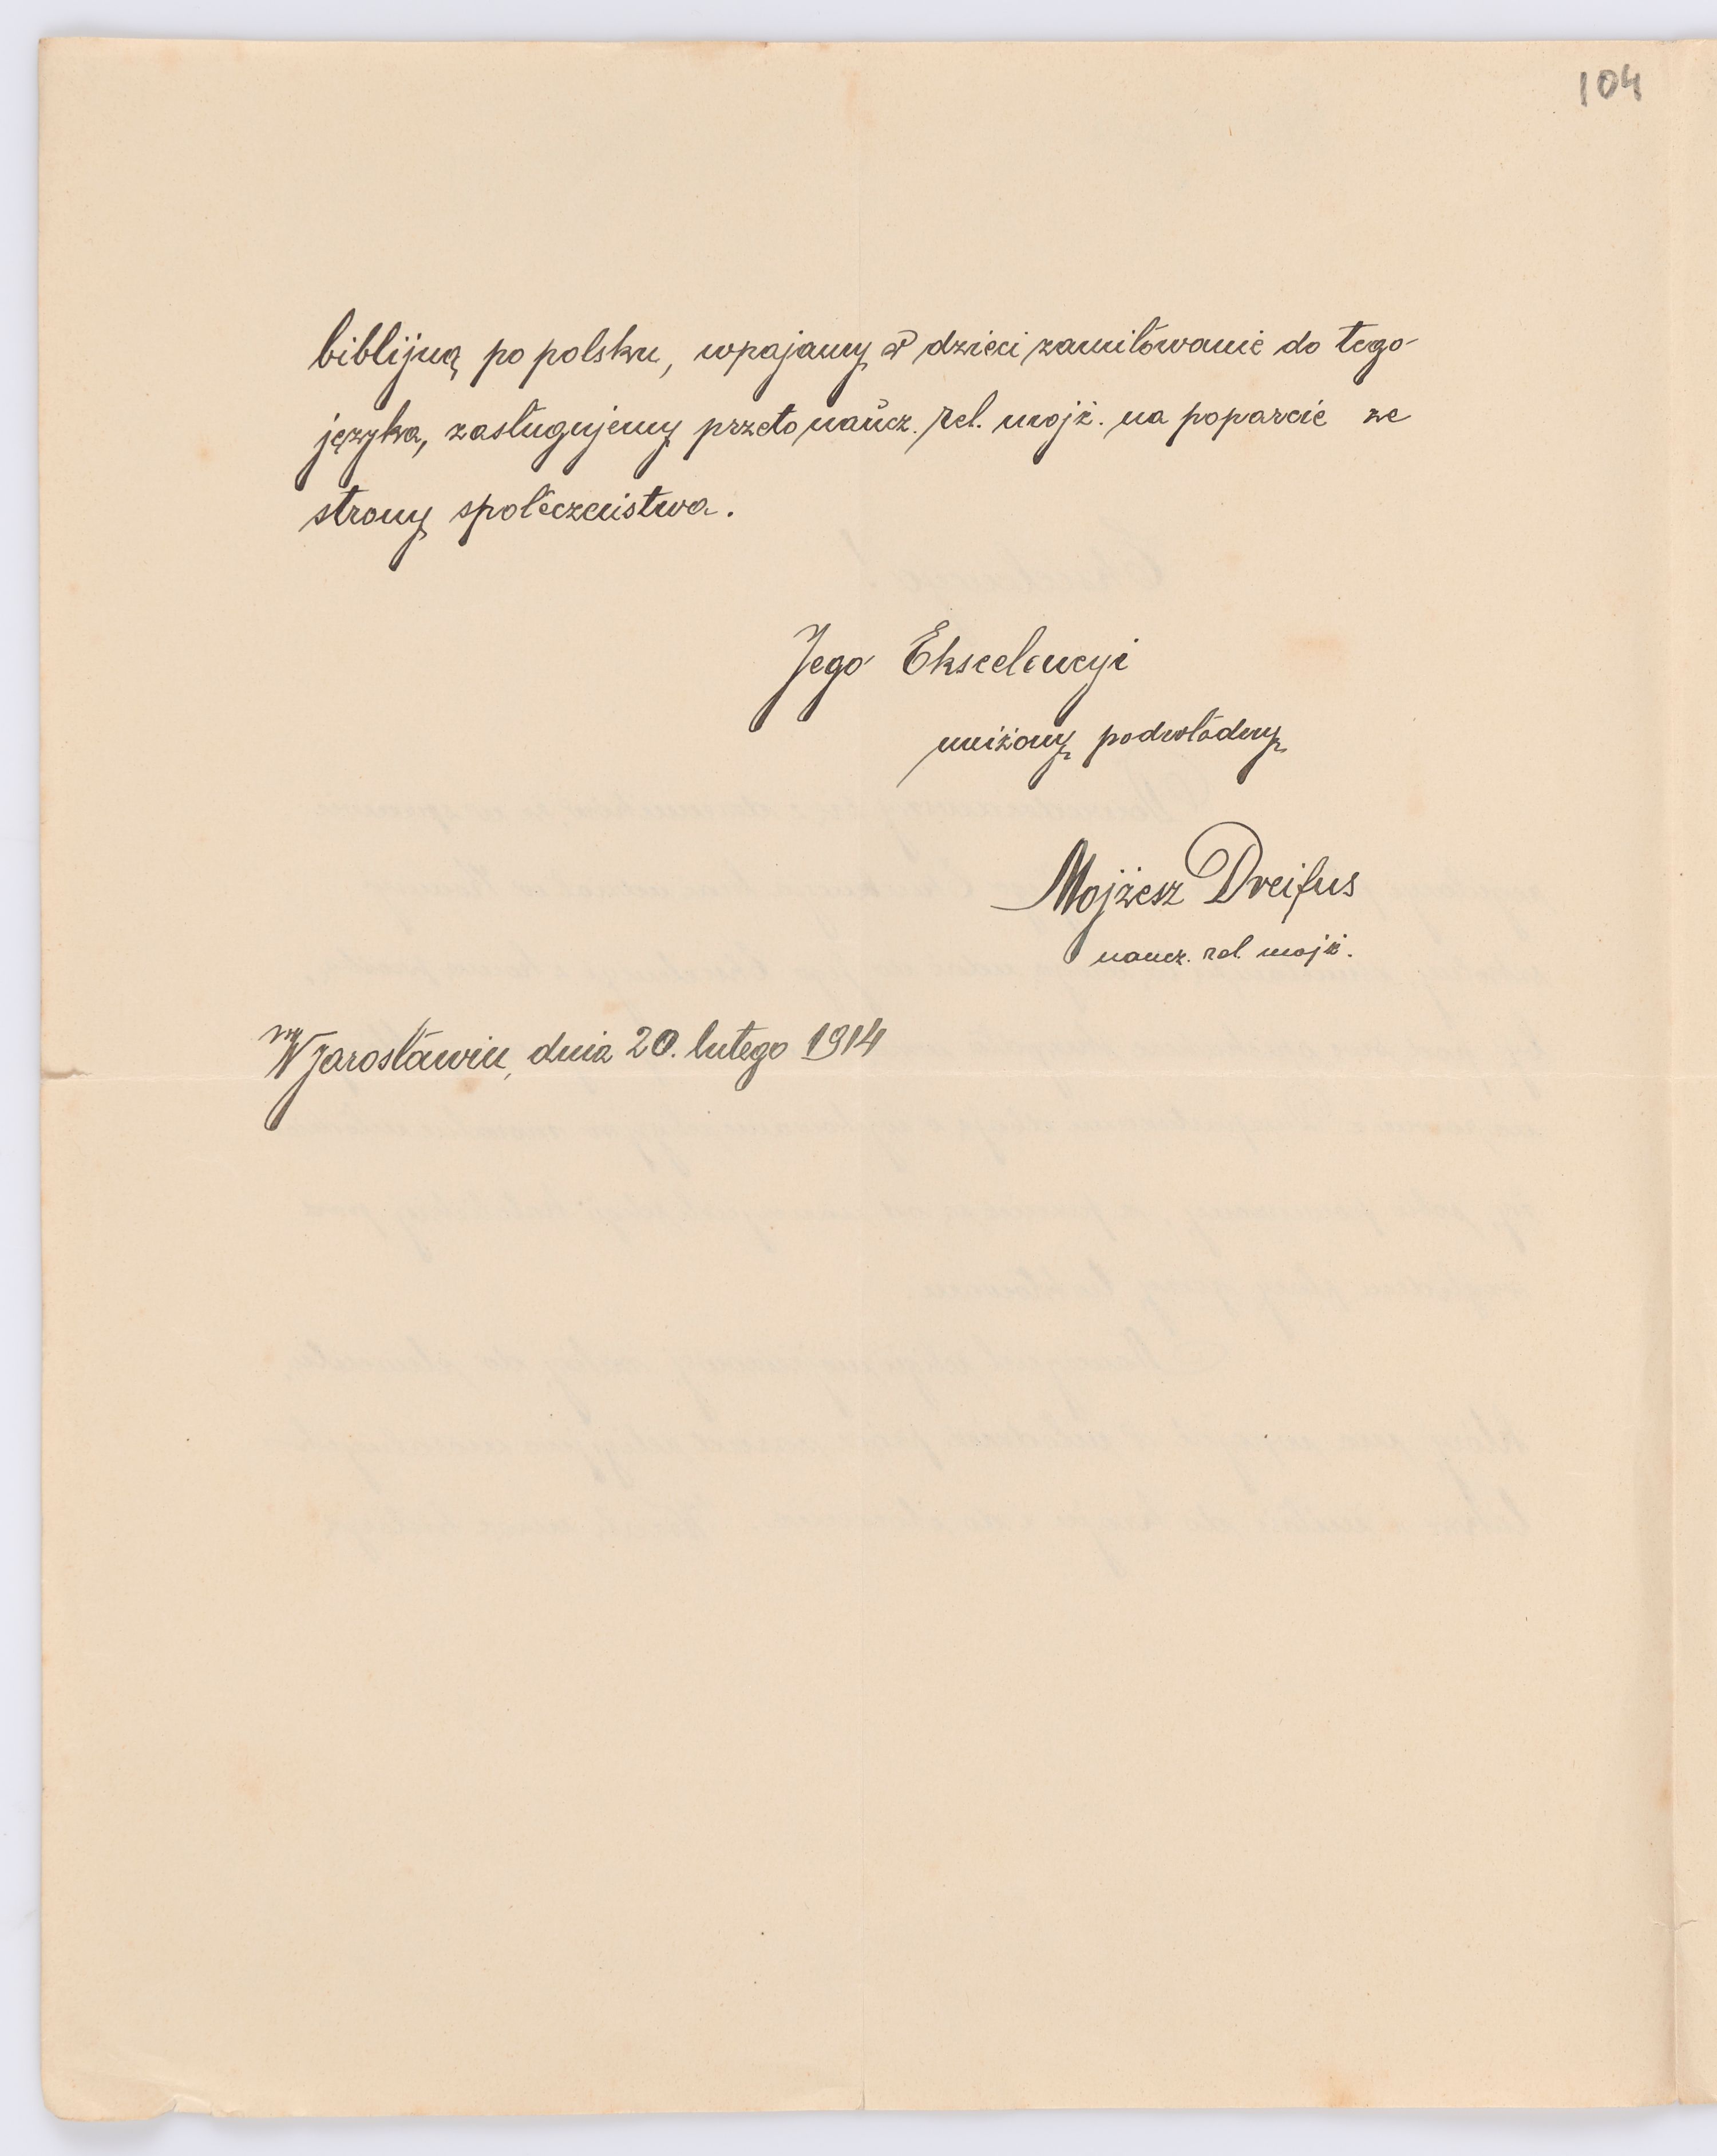 104
biblijną po polsku, wpajamy w dzieci zamiłowanie do tego
języka, zasługujemy przeto naucz. rel. mojż. na poparcie ze
strony społeczeństwa.
Jego Ekscelencyi
uniżony podwładny
Mojżesz Dreifus
naucz. rel. mojż.
W Jarosławiu, dnia 20. lutego 1914